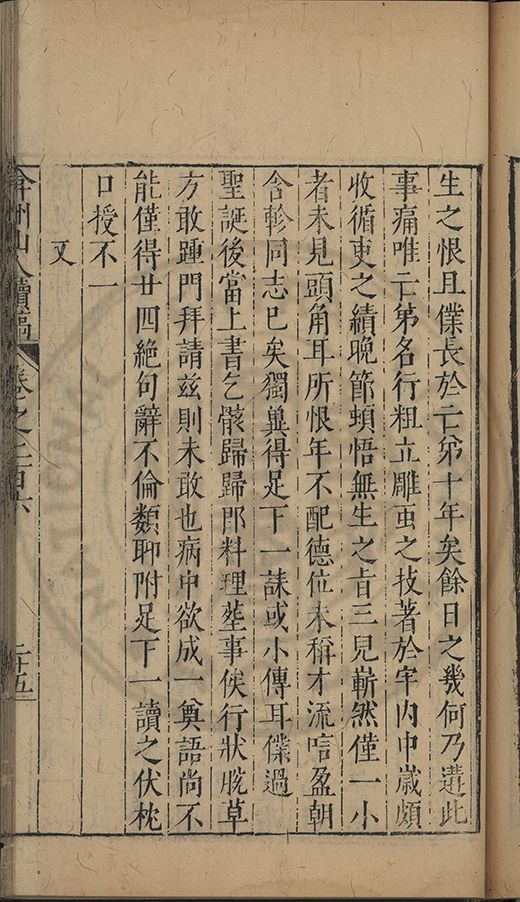 生之恨且僕長於亡弟十年矣餘日之幾何乃遘此
事痛唯亡弟名行粗立雕虫之技著於宇內中歲頗
收循吏之績晚節頓悟無生之旨三兒嶄然僅一小
者未見頭角耳所恨年不配德位未稱才流唁盈朝
含軫同志已矣獨冀得足下一誄或小傳耳僕過
聖誕後當上書乞骸歸歸即料理塟事俟行狀脫草
方敢踵門拜請茲則未敢也病中欲成一奠語尚不
能僅得廿四絕句辭不倫類聊附足下一讀之伏枕
口授不一
又
弇州山人續稿
卷之二百六
二十五